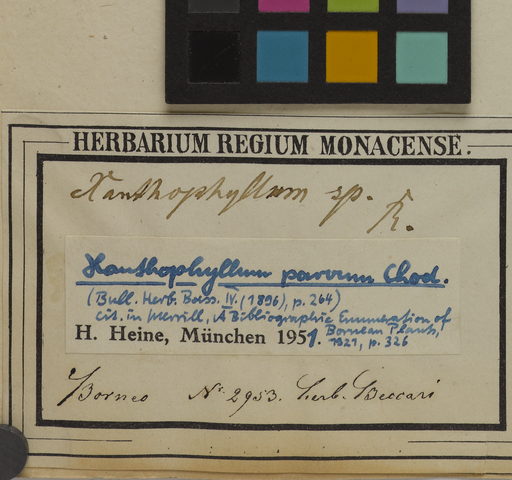 HERBARIUM REGIUM MONACENSE.
Xanthophyllum sp.
R.
Xanthophyllum parvum Chod.
(Bull. Herb. Boiss. IV. (1896), p. 264)
cit. in Merrill, A Bibliographic Enumeration of
Bornean Plants,
H. Heine, München 1951.
1921, p. 326
Borneo No 2953. herb. Beccari